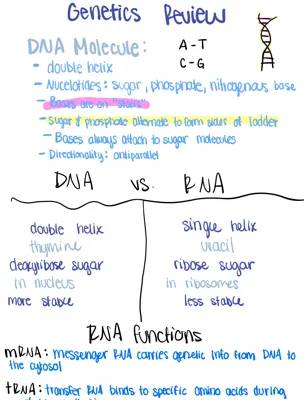 Genetics Review
DNA Molecule:
A-T
C-G
- double helix
- Nucelotides: sugar, phosphate, nitrogenous base
- Bases are on "stairs"
- Sugar & phosphate alternate to form sides of ladder
- Bases always attach to sugar molecules
- Directionality: antiparallel
DNA vs. RNA
double helix
thymine
deoxyribose sugar
in nucleus
more stable
single helix
uracil
ribose sugar
in ribosomes
less stable
RNA Functions
mRNA: messenger RNA carries genetic info from DNA to
the cytosol
tRNA: transfer RNA binds to specific amino acids during